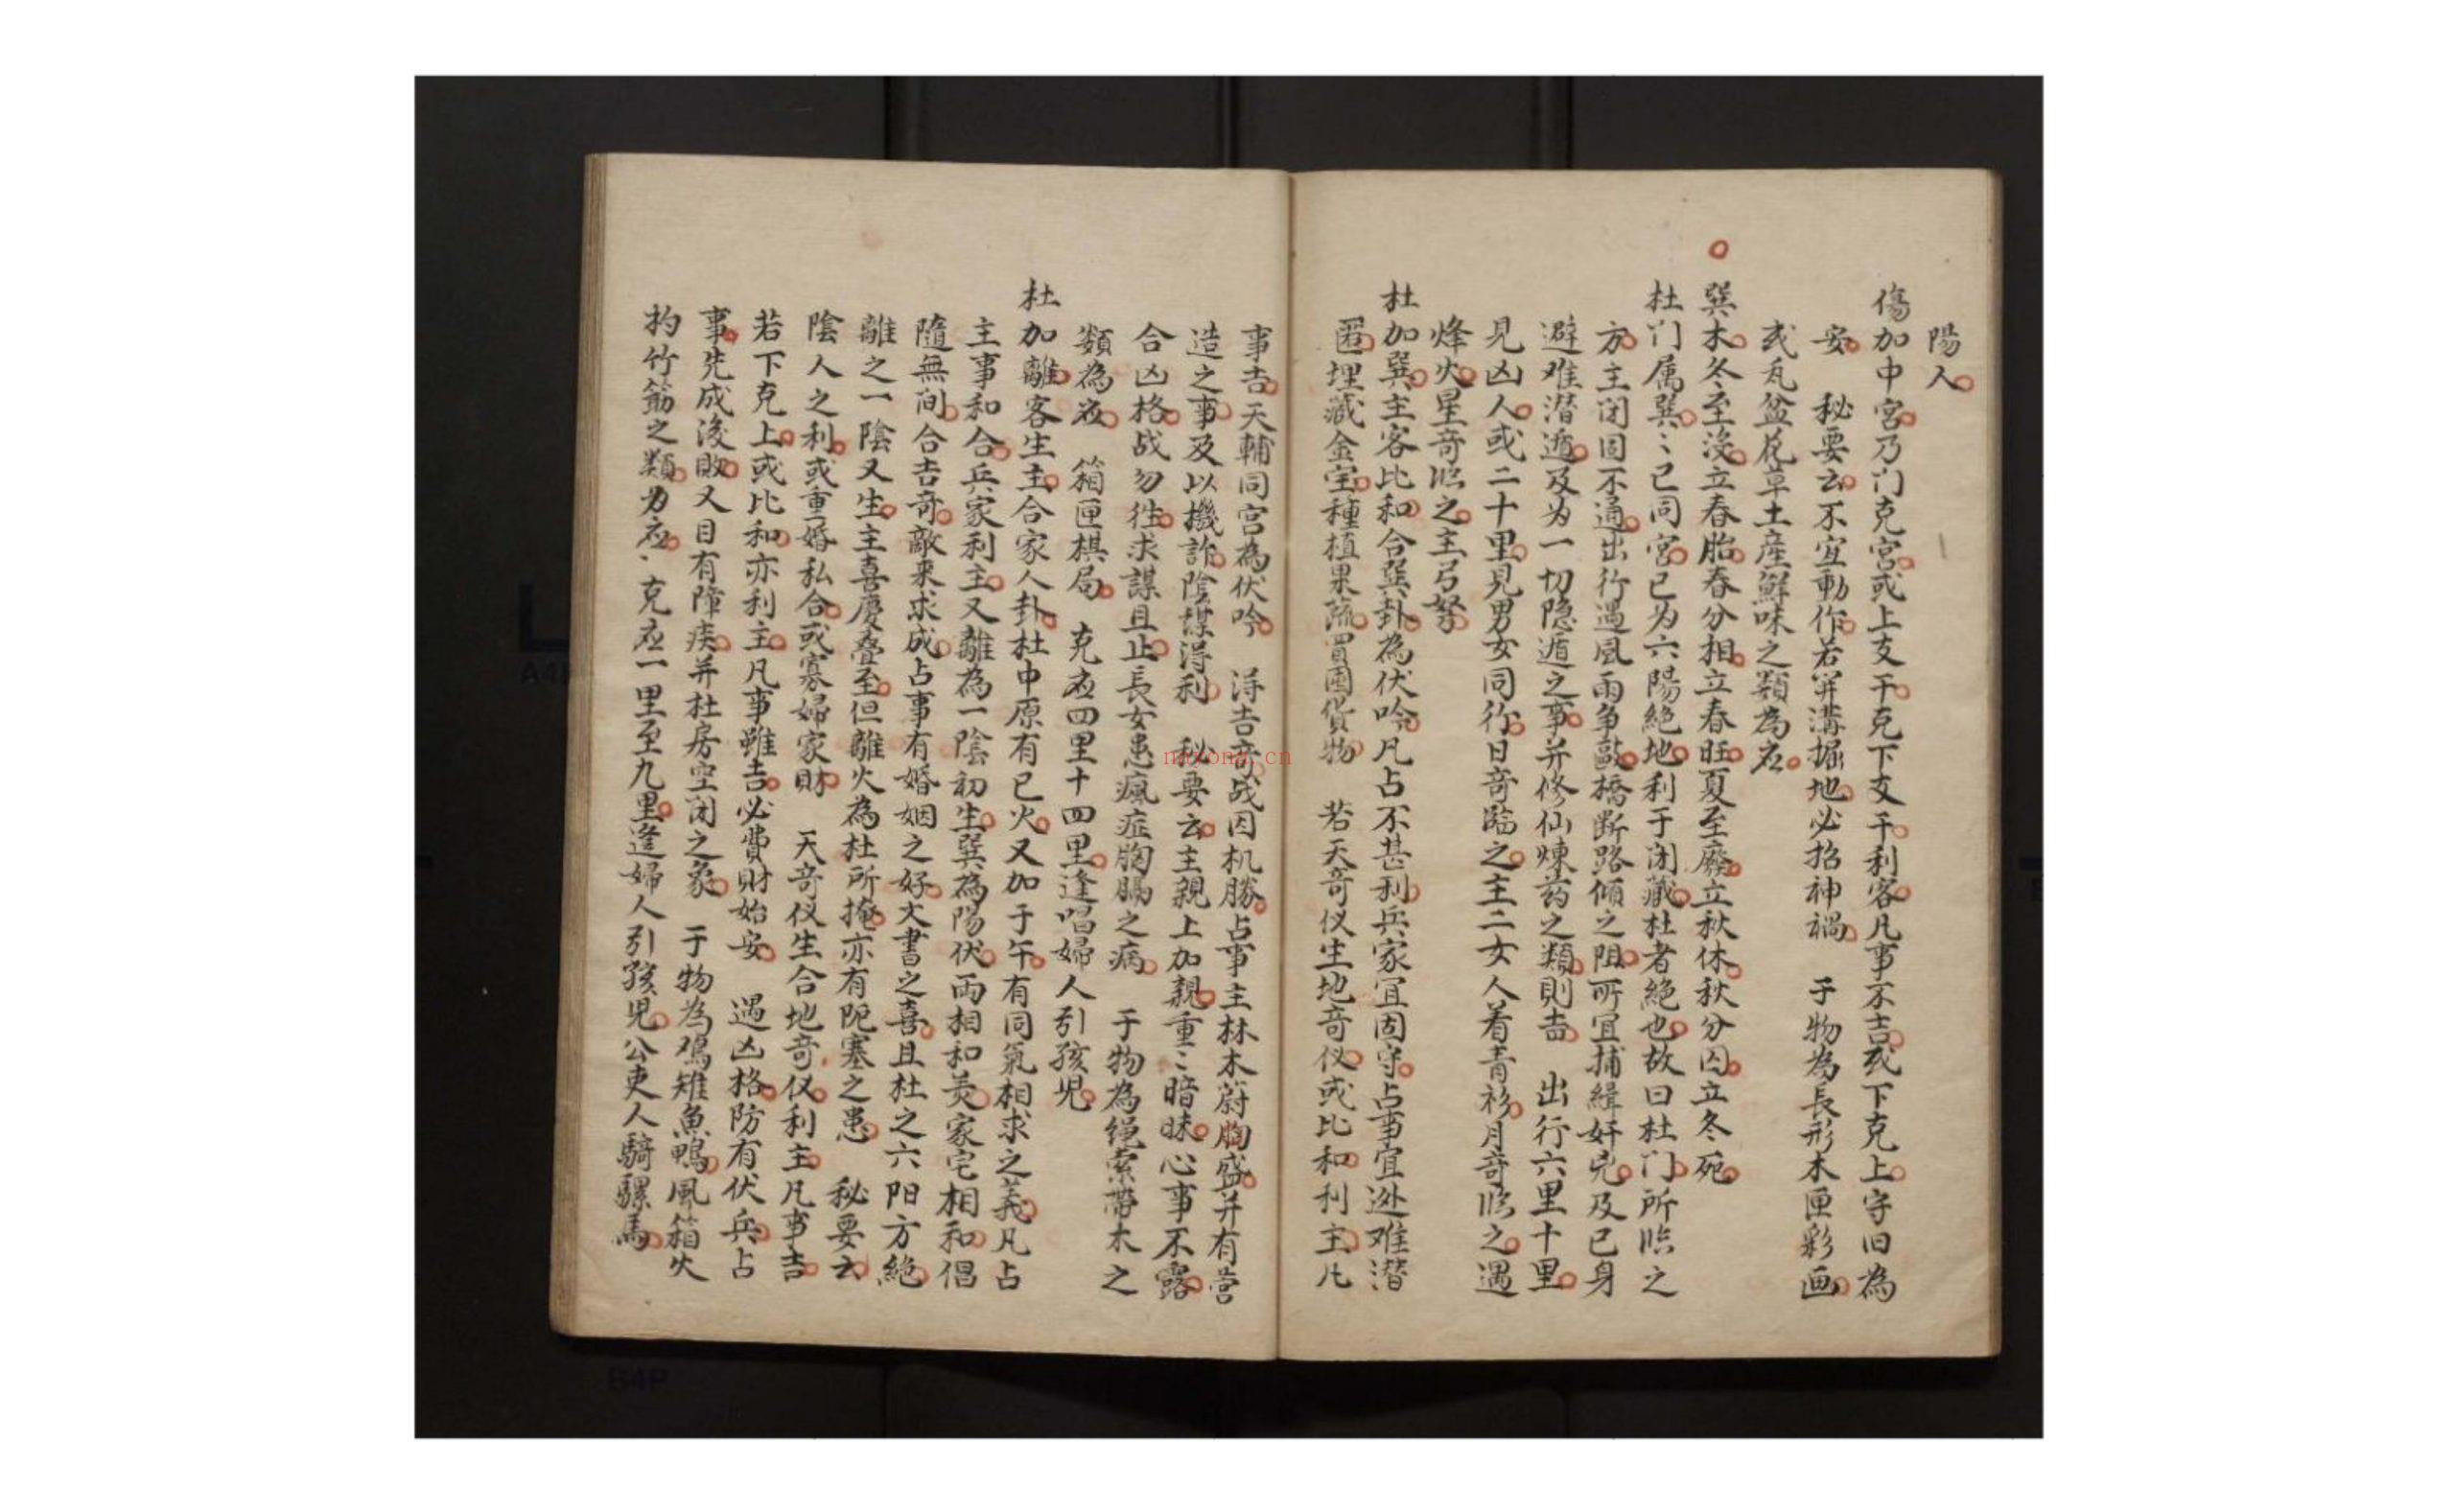 陽人
傷加中宮乃门克宮或上支干克下支干利客凡事不吉或下克上守旧為
安 秘要云不宜動作若并溝掘地必招神禍 于物為長形木匣彩画
或瓦盆花草土産鮮味之類為应
巽木冬至没立春胎春分相立春旺夏至廢立秋休秋分囚立冬死
杜门属巽〻已同宮已为六陽絶地利于闭藏杜者絶也故曰杜门所临之
方主闭固不通出行遇風雨争敺橋断路傾之阻所宜捕緝奸宄及已身
避难潜遁及为一切隐遁之事并修仙煉药之類則吉 出行六里十里
見凶人或二十里見男女同行日奇臨之主二女人着青衫月奇临之遇
烽火星奇临之主弓弩
杜加巽主客比和合巽卦為伏吟凡占不甚利兵家宜固守占事宜逃难潜
匿埋藏金宝種植果蔬買囤貨物 若天奇仪生地奇仪或比和利主凡
事吉天輔同宮為伏吟 淂吉奇战因机勝占事主林木蔚胸盛并有营
造之事及以機詐陰謀淂利 秘要云主親上加親重〻暗昧心事不露
合凶格战勿徃求謀且止長女患瘋症胸腸之病 于物為绳索帶木之
類為应 箱匣棋局 克应四里十四里逢唱婦人引孩児
杜加離客生主合家人卦杜中原有已火又加于午有同氣相求之義凡占
主事和合兵家利主又離為一陰初生巽為陽伏両相和美家宅相和倡
隨無间合吉奇敵来求成占事有婚姻之好文書之喜且杜之六阳方絶
離之一陰又生主喜慶叠至但離火為杜所掩亦有阨塞之患 秘要云
陰人之利或重婚私合或寡婦家財 天奇仪生合地奇仪利主凡事吉
若下克上或比和亦利主凡事雖吉必費財始安 遇凶格防有伏兵占
事先成後敗又目有障疾并杜房空闭之象 于物為鳮雉魚鴨風箱火
杓竹筯之類为应、克应一里至九里逢婦人引孩児公吏人騎騾馬
nayona.cn